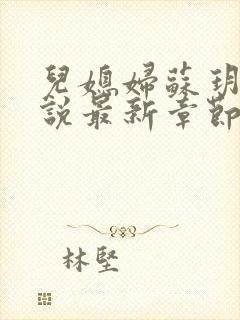 兒媳婦蘇玥
說最新章節
林堅